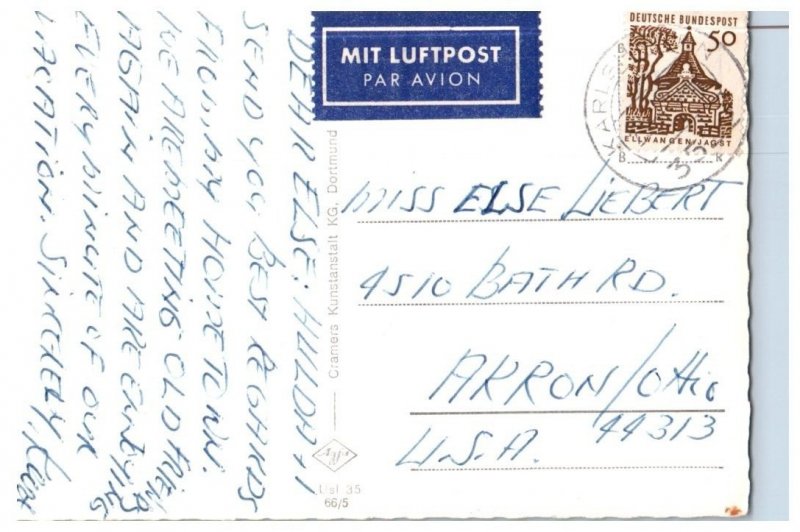 DEAR ELSE; HULDA + I
SEND YOU BEST REGARDS
FROM MY HOMETOWN.
WE ARE MEETING OLD FRIENDS
AGAIN AND ARE ENJOYING
EVERY MINUTE OF OUR
VACATION. SINCERELY,
MIT LUFTPOST
PAR AVION
DEUTSCHE BUNDESPOST
50
ELLWANGEN/JAGST
Cramers Kunstanstalt KG, Dortmund
66/5
MISS ELSE LIEBERT
4510 BATH RD.
AKRON/OHIO
44313
U.S.A.